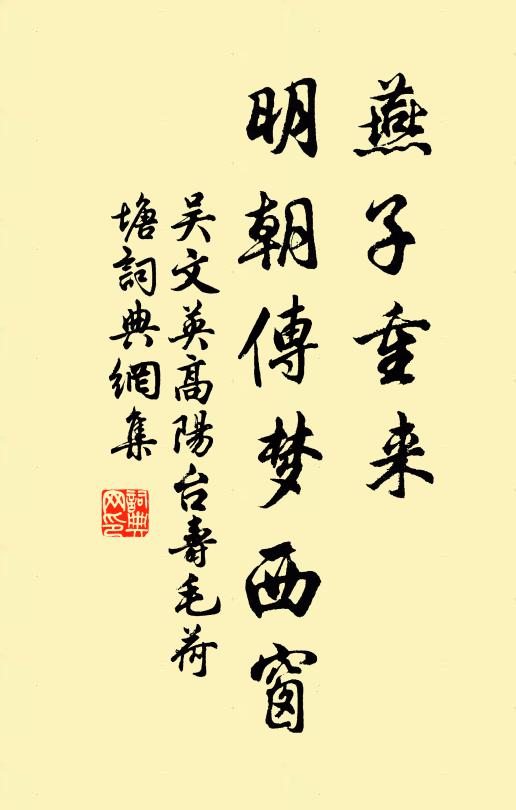 燕子重来
明朝傳梦西窗
吴文英高陽台壽毛荷
塘詞典網集
詞典
网印